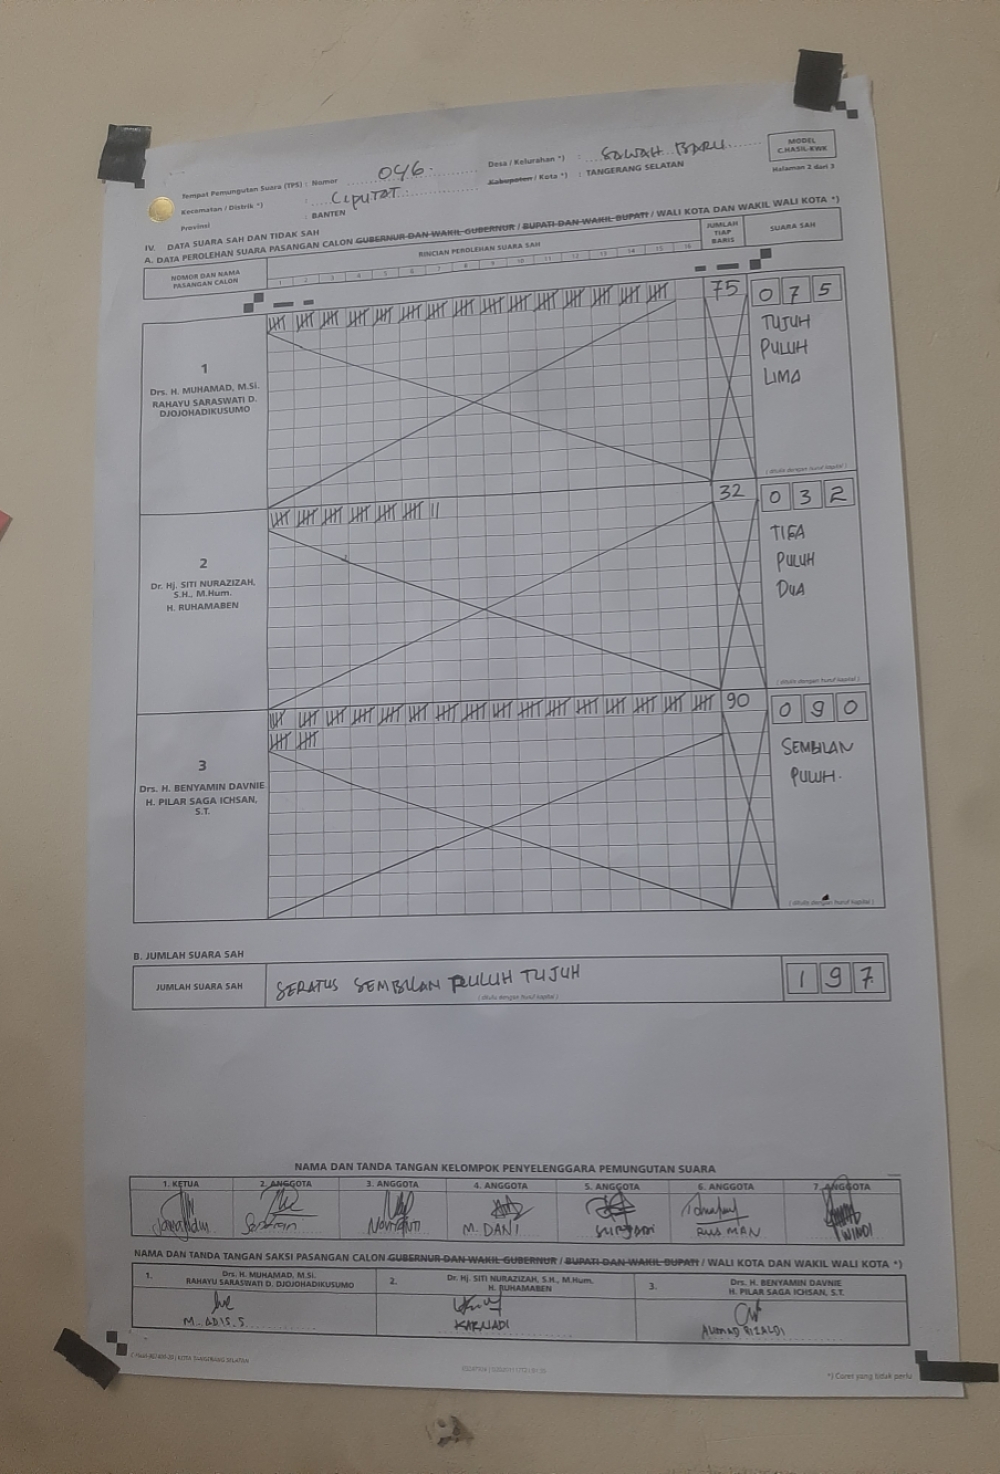 MODEL
C.HASIL-KWK
Halaman 2 dari 3
Tempat Pemungutan Suara (TPS) : Nomor 046. Desa / Kelurahan *) : SAWAH BARU
Kecamatan / Distrik *) : CIPUTAT Kabupaten / Kota *) : TANGERANG SELATAN
Provinsi : BANTEN
IV. DATA SUARA SAH DAN TIDAK SAH
A. DATA PEROLEHAN SUARA PASANGAN CALON GUBERNUR DAN WAKIL GUBERNUR / BUPATI DAN WAKIL BUPATI / WALI KOTA DAN WAKIL WALI KOTA *)
NOMOR DAN NAMA
PASANGAN CALON
RINCIAN PEROLEHAN SUARA SAH
1 2 3 4 5 6 7 8 9 10 11 12 13 14 15 16
JUMLAH
TIAP
BARIS
SUARA SAH
1
Drs. H. MUHAMAD, M.Si.
RAHAYU SARASWATI D.
DJOJOHADIKUSUMO
75
0 7 5
TUJUH
PULUH
LIMA
( ditulis dengan huruf kapital )
2
Dr. Hj. SITI NURAZIZAH,
S.H., M.Hum.
H. RUHAMABEN
32
0 3 2
TIGA
PULUH
DUA
( ditulis dengan huruf kapital )
3
Drs. H. BENYAMIN DAVNIE
H. PILAR SAGA ICHSAN,
S.T.
90
0 9 0
SEMBILAN
PULUH.
( ditulis dengan huruf kapital )
B. JUMLAH SUARA SAH
JUMLAH SUARA SAH
SERATUS SEMBILAN PULUH TUJUH
( ditulis dengan huruf kapital )
1 9 7
NAMA DAN TANDA TANGAN KELOMPOK PENYELENGGARA PEMUNGUTAN SUARA
1. KETUA 2. ANGGOTA 3. ANGGOTA 4. ANGGOTA 5. ANGGOTA 6. ANGGOTA 7. ANGGOTA
M. DANI RUSMAN WINDI
NAMA DAN TANDA TANGAN SAKSI PASANGAN CALON GUBERNUR DAN WAKIL GUBERNUR / BUPATI DAN WAKIL BUPATI / WALI KOTA DAN WAKIL WALI KOTA *)
1. Drs. H. MUHAMAD, M.Si.
RAHAYU SARASWATI D. DJOJOHADIKUSUMO
2. Dr. Hj. SITI NURAZIZAH, S.H., M.Hum.
H. RUHAMABEN
3. Drs. H. BENYAMIN DAVNIE
H. PILAR SAGA ICHSAN, S.T.
KARNADI
AHMAD RIZALDI
KOTA TANGERANG SELATAN
*) Coret yang tidak perlu